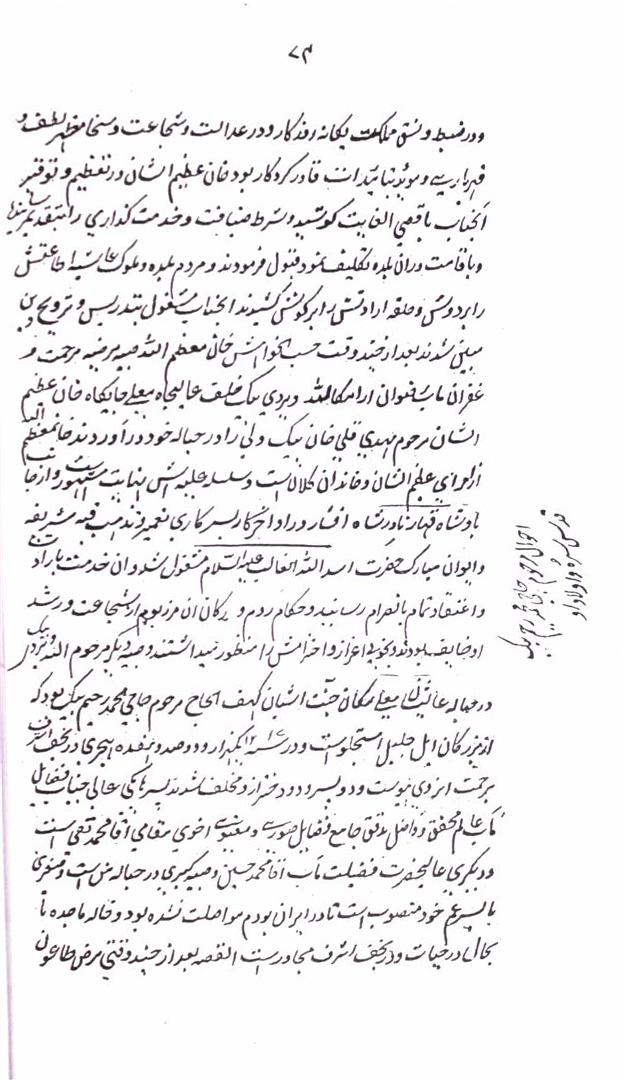 ۷۳
و در ضبط و نسق مملکت یکانه روزکار و در عدالت و شجاعت و سخا مظهر لطف و
قهر باری و موید بتائیدات قادر کردکار بود خان عظیم الشان در تعظیم و توقیر
آنجناب باقصی الغایت کوشید و شرط ضیافت و خدمت گذاری را بتقدیم
و باقامت دران بلده تکلیف نمود قبول فرمودند و مردم بلده و ملوک غاشیه اطاعتش
را بر دوش و حلقه ارادتش را بر گوش کشیدند آنجناب مشغول بتدریس و ترویج دین
مبین شدند بعد از چند وقت حسب الخواهش خان معظم الله صبیه مرضیه مرحمت و
غفران مآب رضوان آرامگاه الله ویردی بیک خلف عالیجاه معلی جایگاه خان عظیم
الشان مرحوم مهدی قلی خان بیک ولی را در حباله خود در آوردند خان معظم الیه
از امرای عظیم الشان و خاندان کلان است و سلسله علیه اش بنابت مشهور و از جانب
پادشاه قهار نادرشاه افشار در اواخر کار بسرکاری تعمیر و تذهیب قبه شریفه
و ایوان مبارک حضرت اسد الله الغالب علیه السلام مشغول شد و ان خدمت را باراد
و اعتقاد تمام بانصرام رسانید و حکام روم و بزرکان ان مرز بوم از شجاعت و رشد
او خایف بودند و بخوبی اعزاز و احترامش را منظور میداشتند و صبیه دیگر مرحوم الله ویردی بیک
در حباله عالیشان معلی مکان جنت اشیان کهف الحاج مرحوم حاجی محمد رحیم بیک بود که
از بزرکان ایل جلیل استجلو است و در سنه ۱۲۱۷ یکهزار و دوصد و هفده هجری در نجف اشرف
برحمت ایزدی پیوست و دو پسر و دو دختر از او مخلف شدند پسرها یکی عالی جناب فضایل
مآب عالم محقق و فاضل مدقق جامع فضایل صوری و معنوی اخوی مقامی آقا محمد تقی است
و دیگری عالیحضرت فضیلت مآب آقا محمد حسین و صبیه کبری در حباله من است و صغری
با پسر عم خود منصوب است تا در ایران بودم مواصلت نشده بود و خاله ماجده تا
بحال در حیات و در نجف اشرف مجاور است القصه بعد از چند وقتی مرض طاعون
احوال مرحوم حاجی محمد رحیم بیک
قدس سره و اولاد او